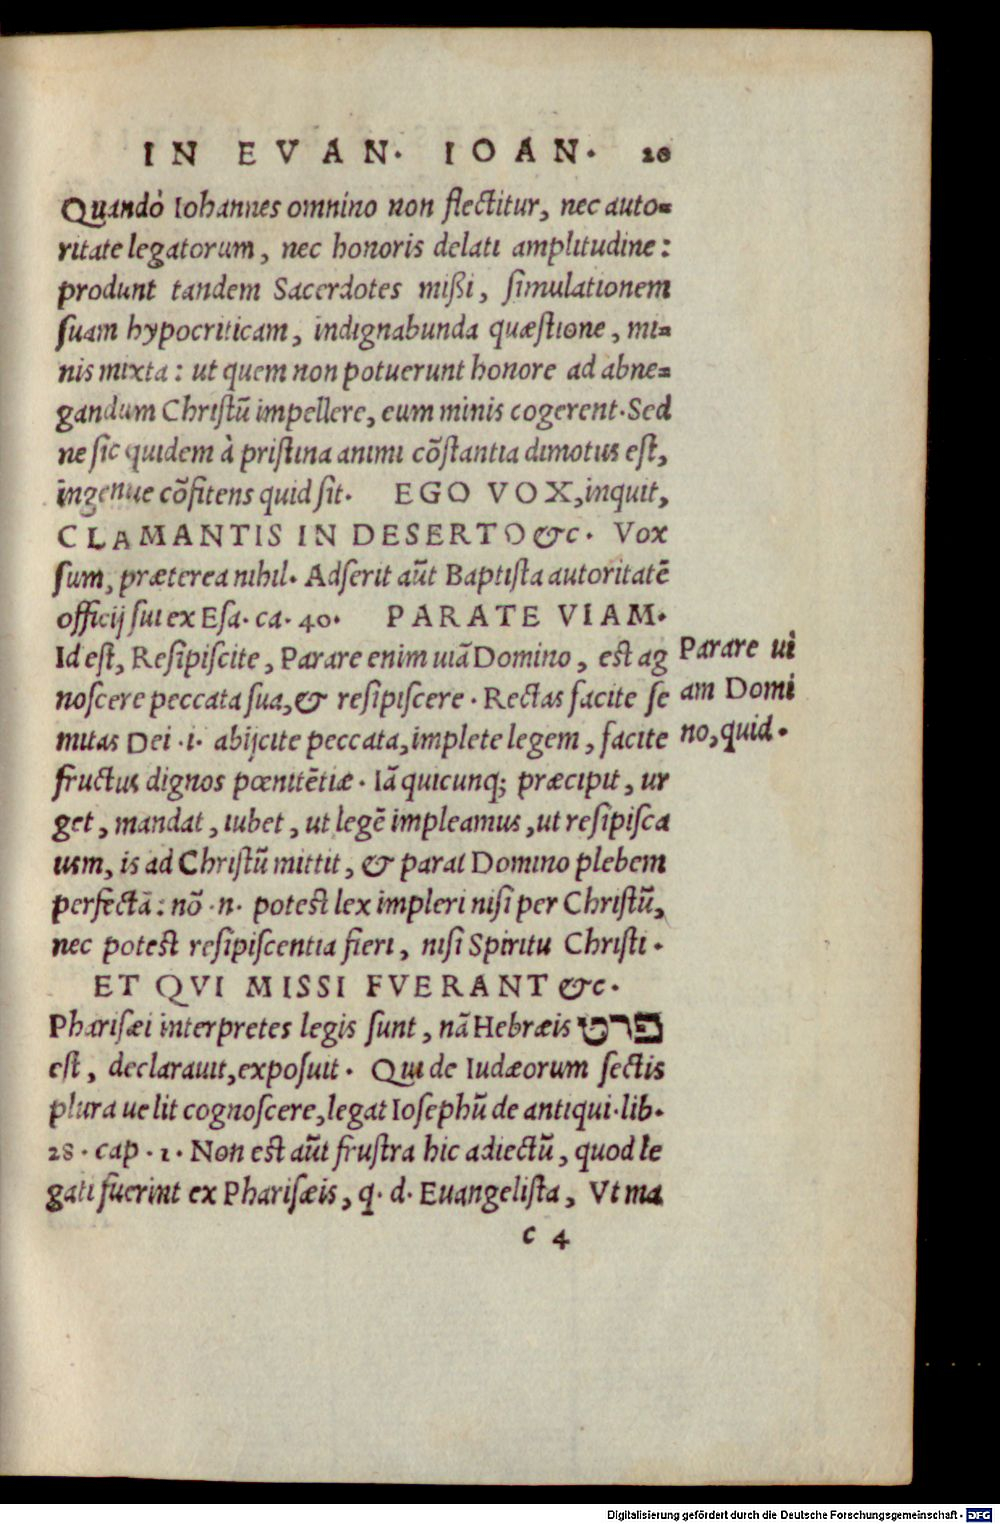 IN EVAN. IOAN. 20
Quandò Iohannes omnino non flectitur, nec auto=
ritate legatorum, nec honoris delati amplitudine:
produnt tandem Sacerdotes mißi, ſimulationem
ſuam hypocriticam, indignabunda quæſtione, mi=
nis mixta: ut quem non potuerunt honore ad abne=
gandum Chriſtũ impellere, eum minis cogerent. Sed
ne ſic quidem à priſtina animi cõſtantia dimotus eſt,
ingenue cõfitens quid ſit. EGO VOX, inquit,
CLAMANTIS IN DESERTO &c. Vox
ſum, præterea nihil. Adſerit aũt Baptiſta autoritatẽ
officij ſui ex Eſa. ca. 40. PARATE VIAM.
Id eſt, Reſipiſcite, Parare enim uiã Domino, est ag
noſcere peccata ſua, & reſipiſcere. Rectas facite ſe
mitas Dei .i. abijcite peccata, implete legem, facite
fructus dignos pœnitẽtiæ. Iã quicunq; præcipit, ur
get, mandat, iubet, ut legẽ impleamus, ut reſipiſca
mus, is ad Chriſtũ mittit, & parat Domino plebem
perfectã: nõ .n. potest lex impleri niſi per Chriſtũ,
nec potest reſipiſcentia fieri, niſi Spiritu Chriſti.
ET QVI MISSI FVERANT &c.
Phariſæi interpretes legis ſunt, nã Hebræis פרט
eſt, declarauit, expoſuit. Qui de Iudæorum ſectis
plura uelit cognoſcere, legat Ioſephũ de antiqui. lib.
28. cap. 1. Non est aũt fruſtra hic adiectũ, quod le
gati fuerint ex Phariſæis, q. d. Euangeliſta, Vt ma
c 4
Parare ui
am Domi
no, quid.
Digitalisierung gefördert durch die Deutsche Forschungsgemeinschaft - DFG